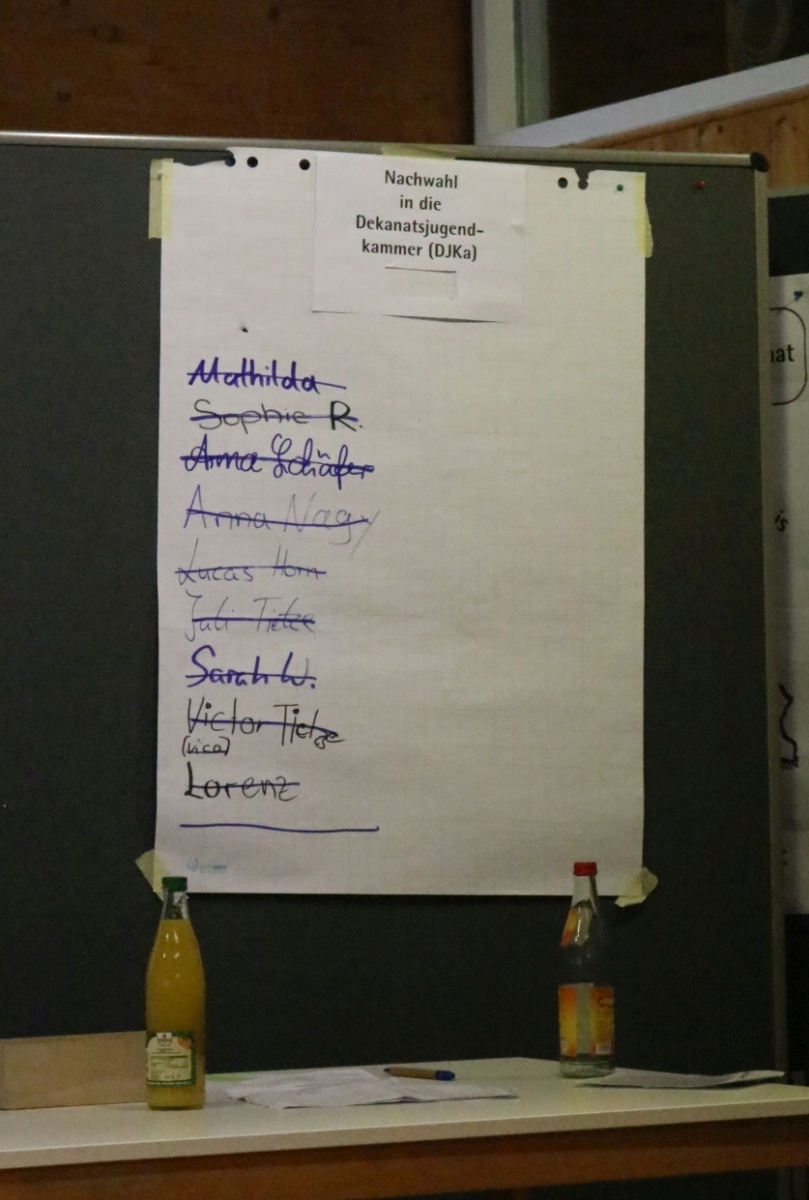 Nachwahl
in die
Dekanatsjugend-
kammer (DJKa)
Mathilda
Sophie R.
Anna Schäfer
Anna Nagy
Lucas Horn
Juli Tietze
Sarah W.
Victor Tietze
(vico)
Lorenz
at